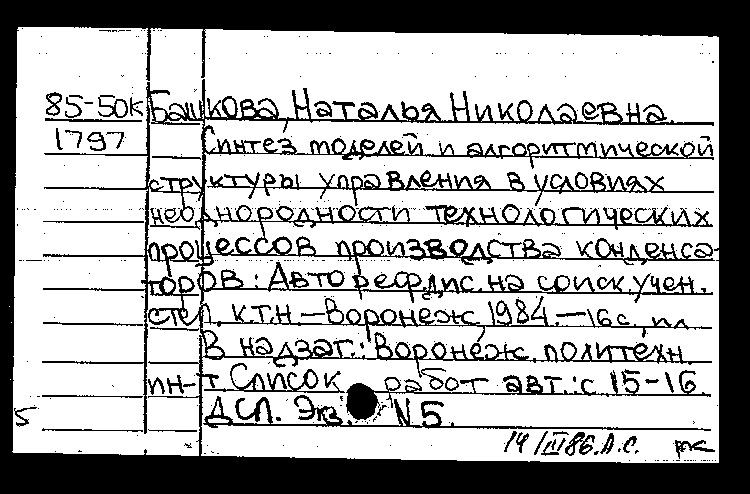 85-50к Башкова, Наталья Николаевна
1797 Синтез моделей и алгоритмической
структуры управления в условиях
неоднородности технологических
процессов производства конденса-
торов: Автореф. дис. на соиск. учен.
степ. к.т.н. — Воронеж, 1984. — 16 с., ил
В надзаг.: Воронеж. политехн.
ин-т. Список работ авт.: с. 15-16
ДСП. Экз. N5.
5
14/III 86. А.С.